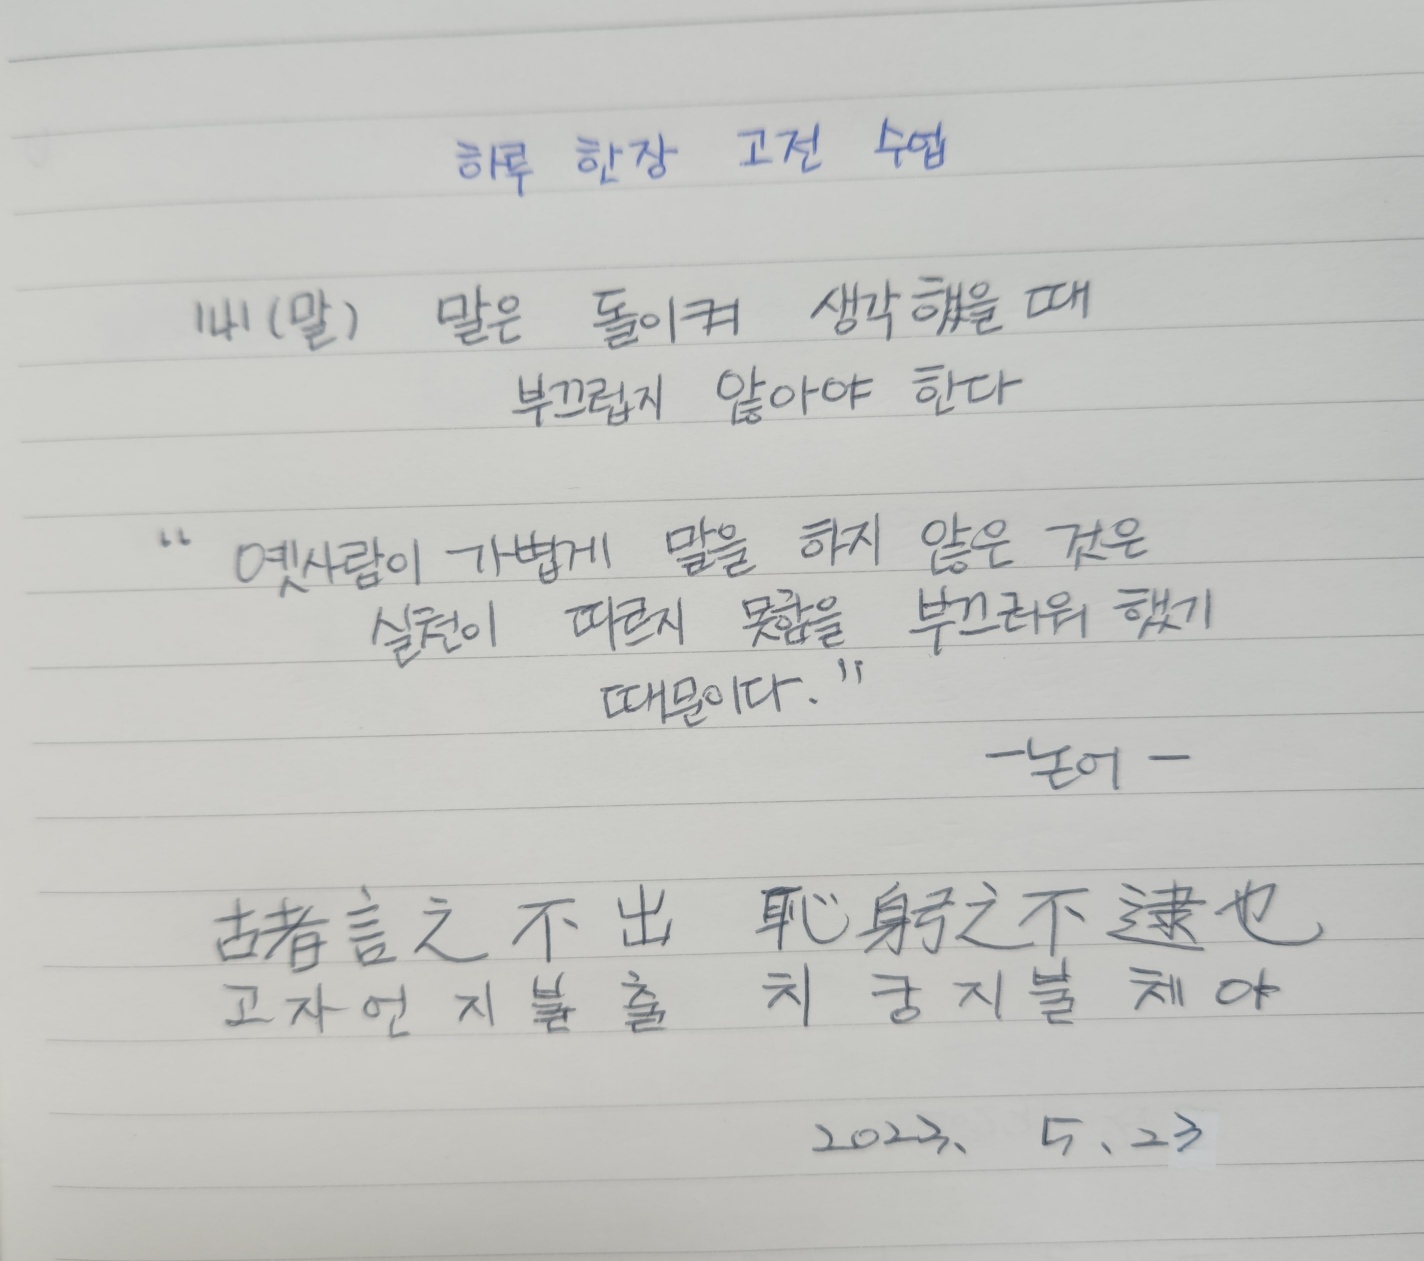 하루 한장 고전 수업
141(말) 말은 돌이켜 생각했을 때
부끄럽지 않아야 한다
“ 옛사람이 가볍게 말을 하지 않은 것은
실천이 따르지 못함을 부끄러워 했기
때문이다.”
-논어-
古者言之不出 恥躬之不逮也
고자언지불출 치궁지불체야
2023. 5. 23